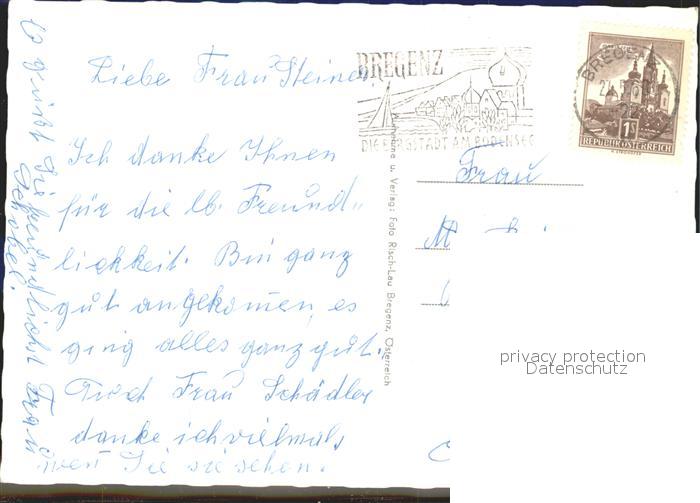 Liebe Frau Steiner
Ich danke Ihnen
für die lb. Freund„
lichkeit. Bin ganz
gut angekomen, es
ging alles ganz gut.
Auch Frau Schädler
danke ich vielmals
wen Sie sie sehen.
Es grüßt Sie freundlichst Frau
BREGENZ
DIE BERGSTADT AM BODENSEE
BREGENZ
1 S
REPUBLIK ÖSTERREICH
Frau
M
Aufnahme u. Verlag: Foto Risch-Lau Bregenz, Österreich
privacy protection
Datenschutz